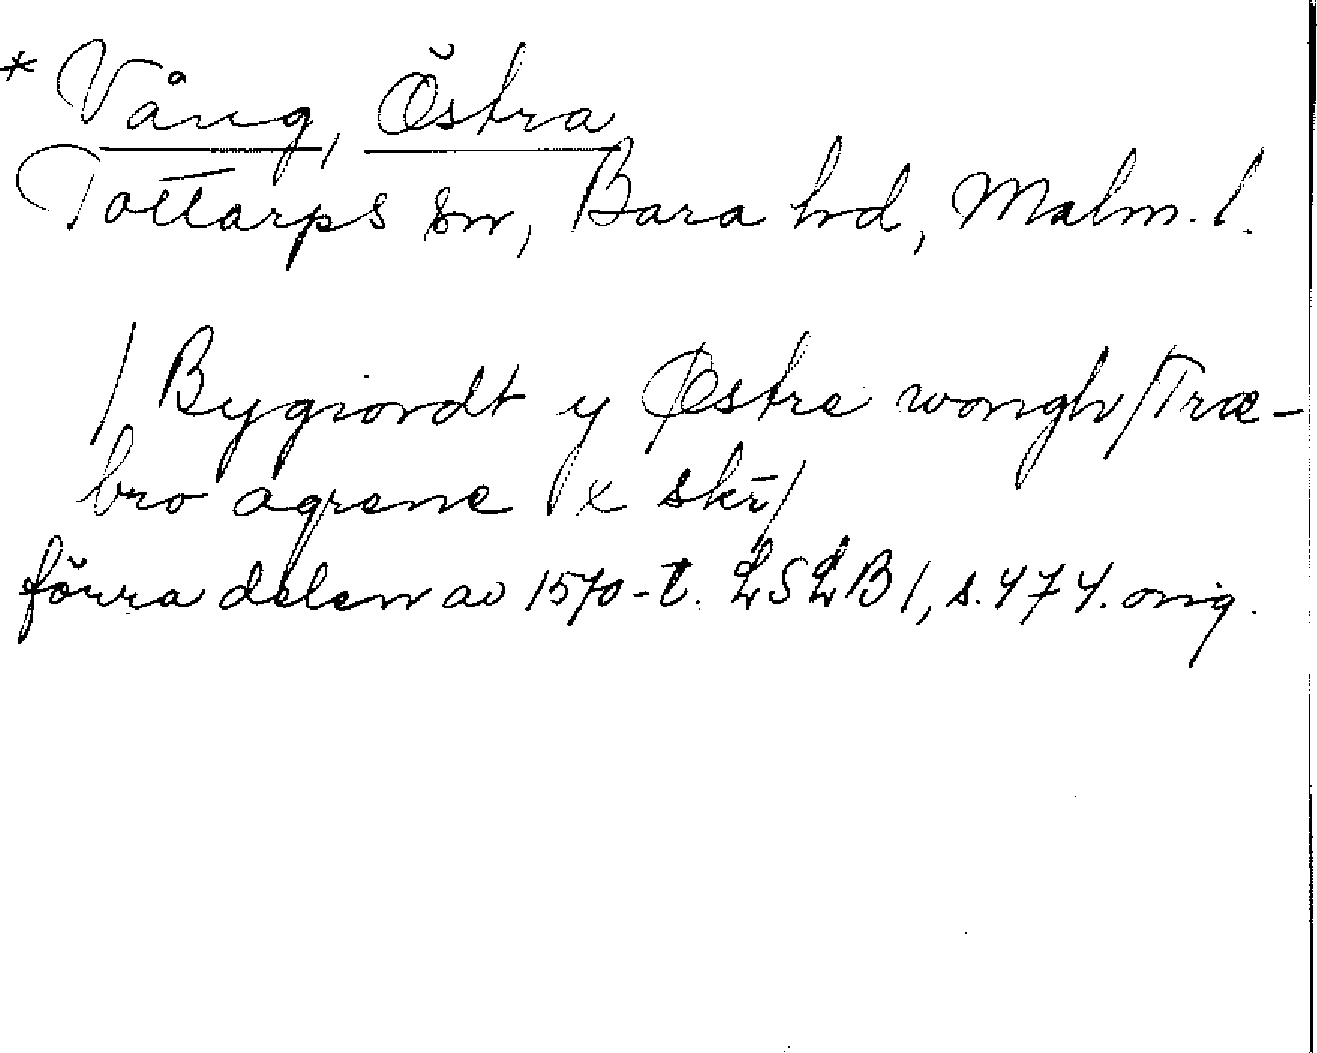 * Vång, Östra
Tottarps sn, Bara hd, Malm. l.
/ Bygiordt y Østre wongh/Træ-
bro agrene x skr/
förra delen av 1570-t. LSLB 1, s. 474. orig.